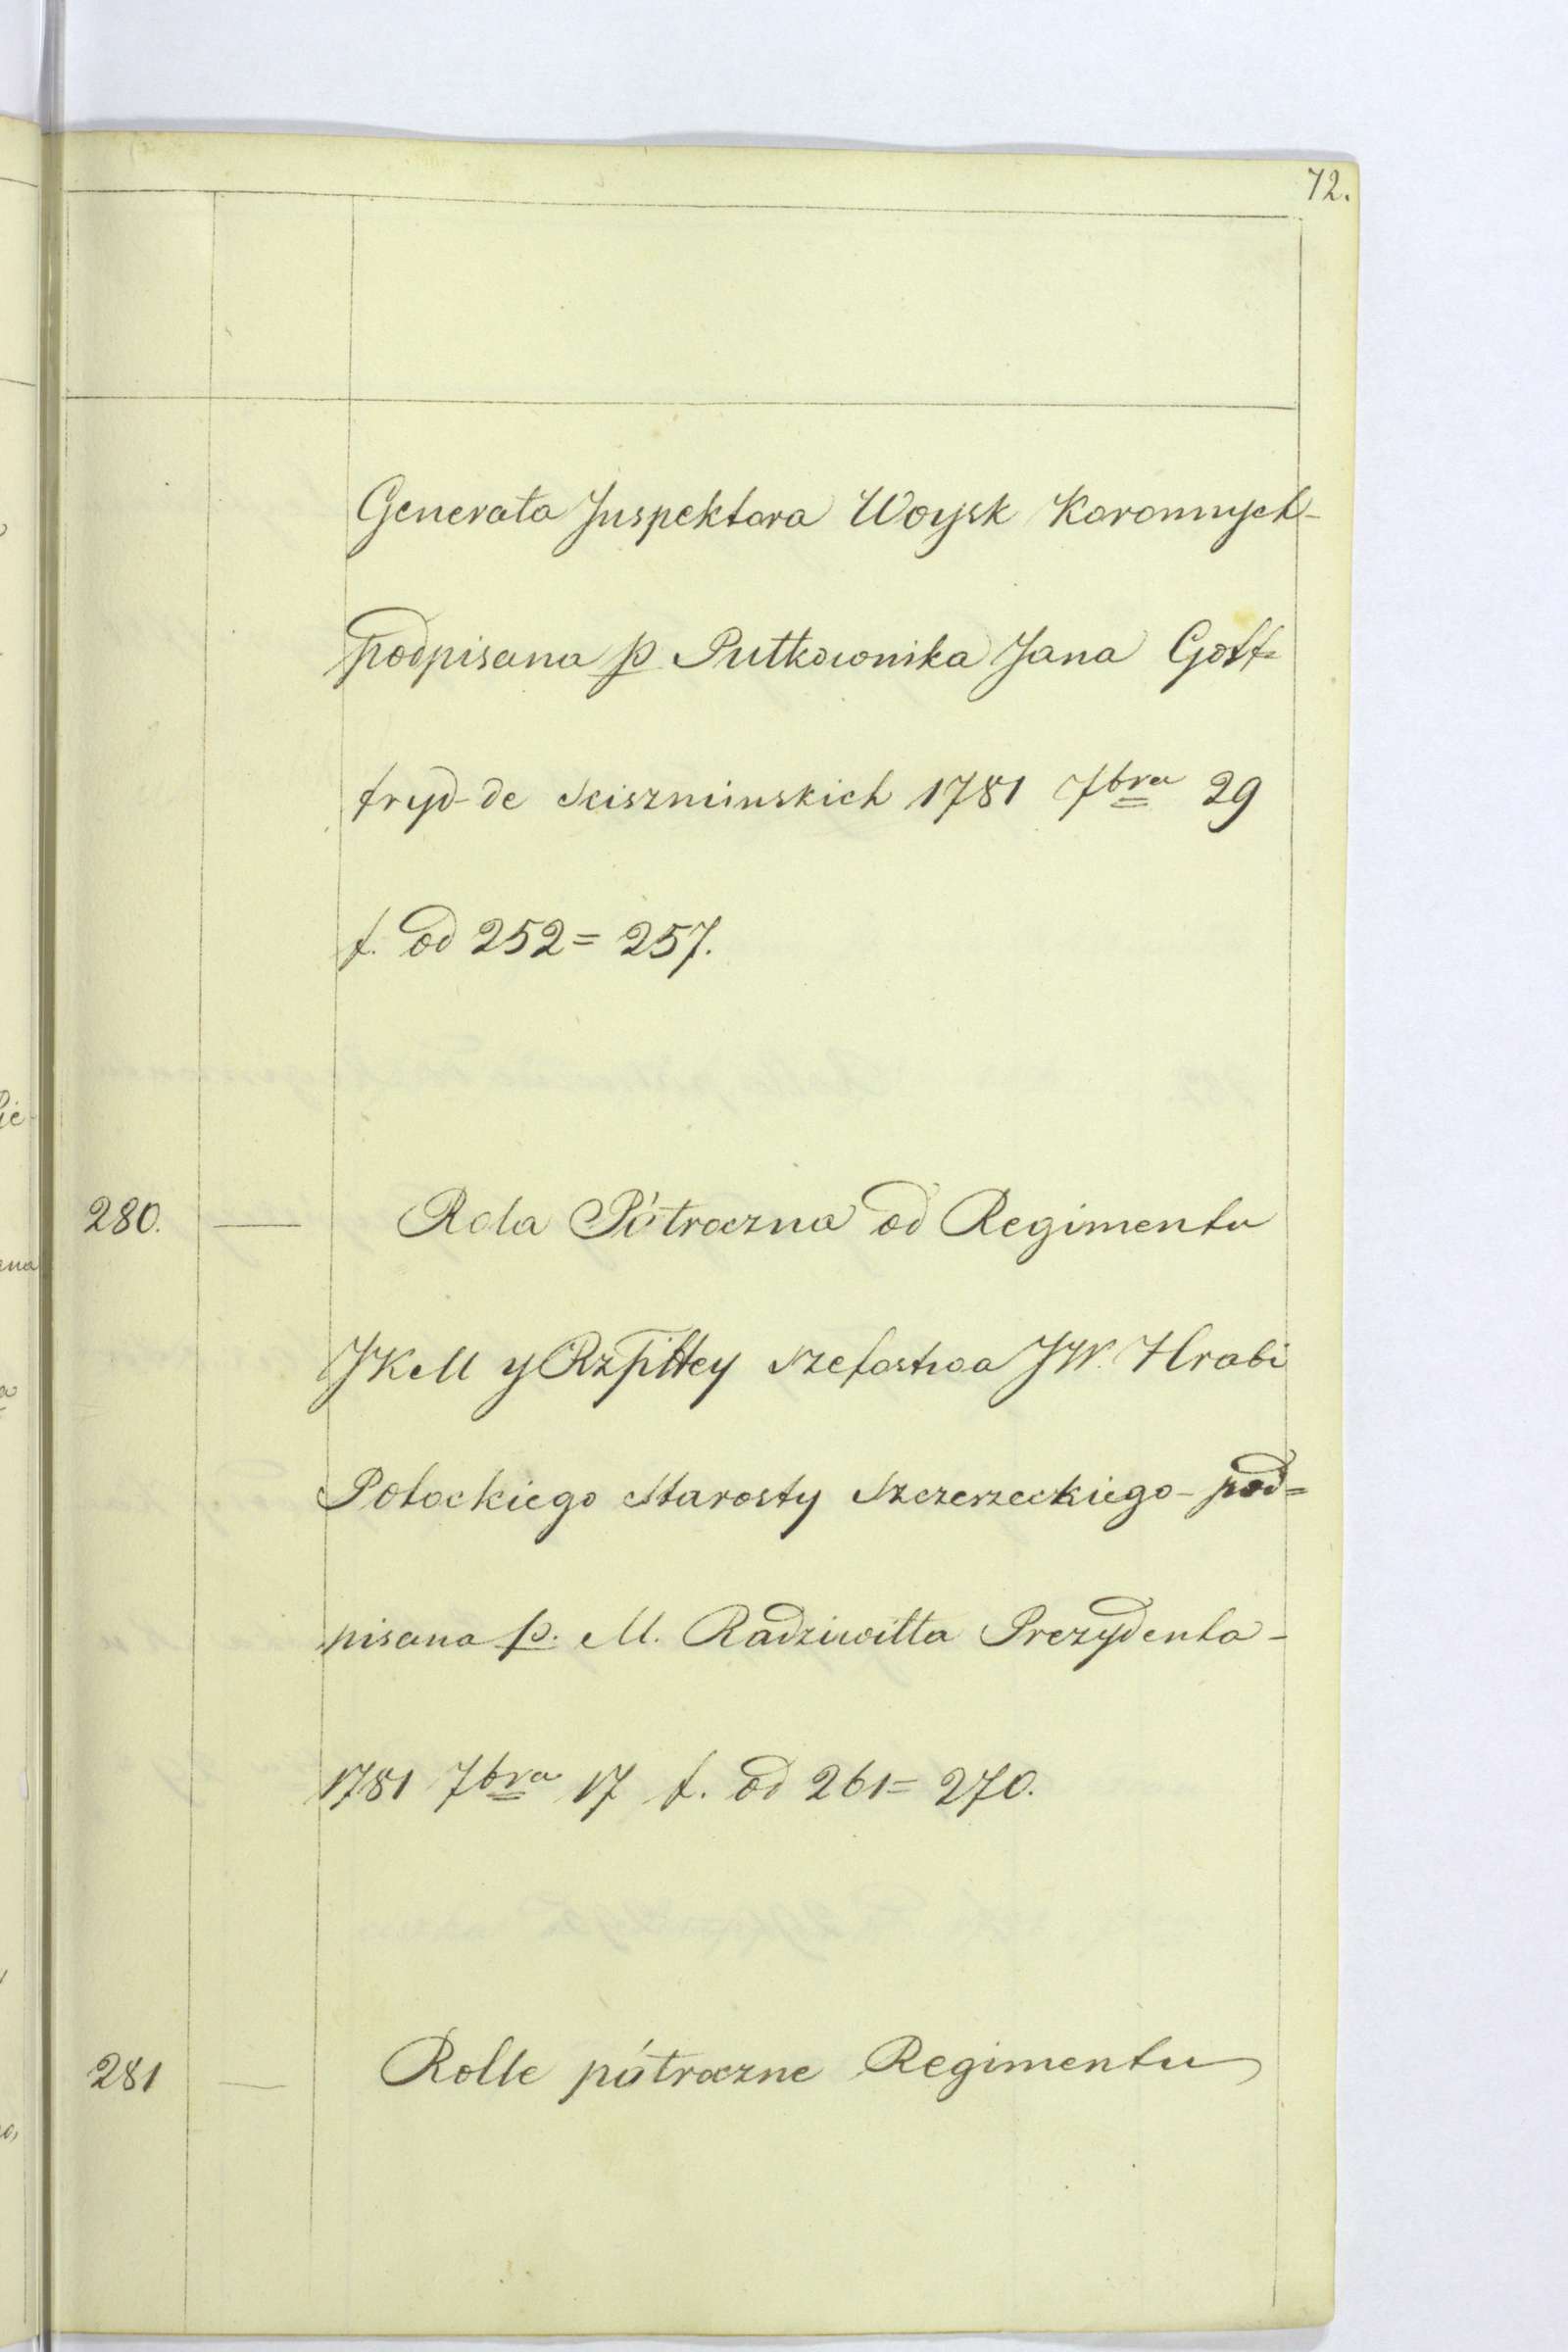 72.
Generała Inspektora Woysk Koronnych-
podpisana p Pułkownika Jana Gott=
fryd- de Sciszminskich 1781 7bra 29
f. od 252= 257.
280. — Rola Półroczna od Regimentu
JKM y Rzpłttey Szefostwa JW. Hrabi
Potockiego Starosty Szczerzeckiego- pod=
pisana p. M. Radziwiłła Prezydenta-
1781 7bra 17 f. od 261= 270.
281 — Rolle półroczne Regimentu